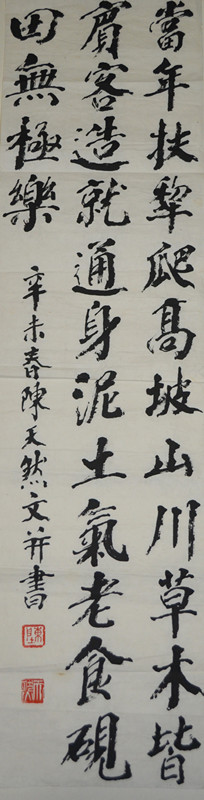 當年扶犂爬高坡山川草木皆
賓客造就通身泥土氣老食硯
田無極樂
辛未春陳天然文并書